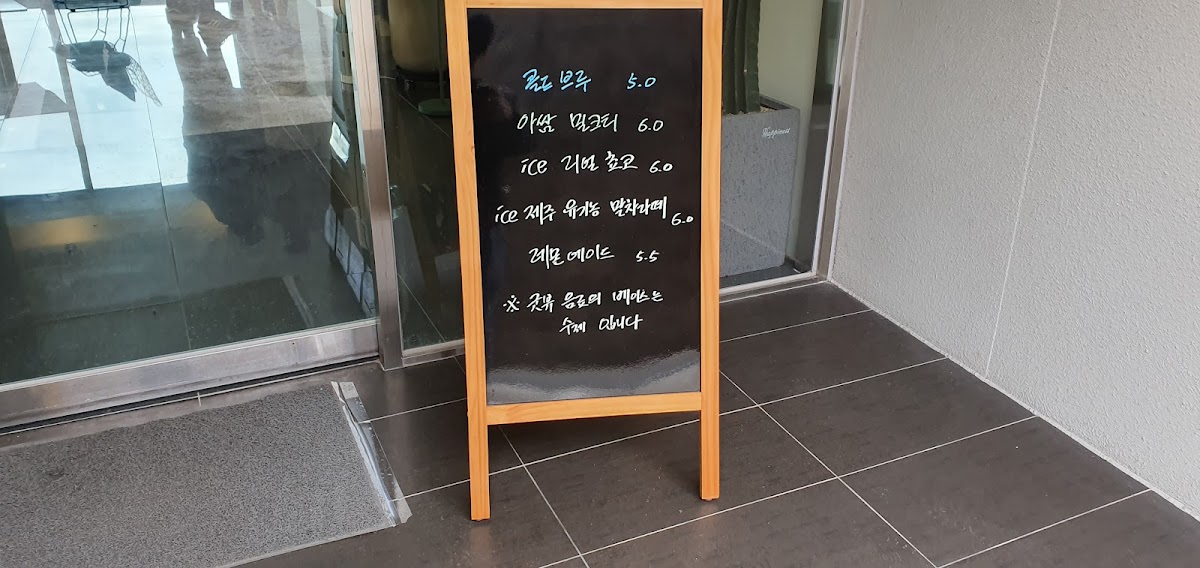 콜드브루 5.0
아쌈 밀크티 6.0
ice 리얼 쵸코 6.0
ice 제주 유기농 말차라떼 6.0
레몬에이드 5.5
※ 굿뷰 음료의 베이스는
수제 입니다
Happiness